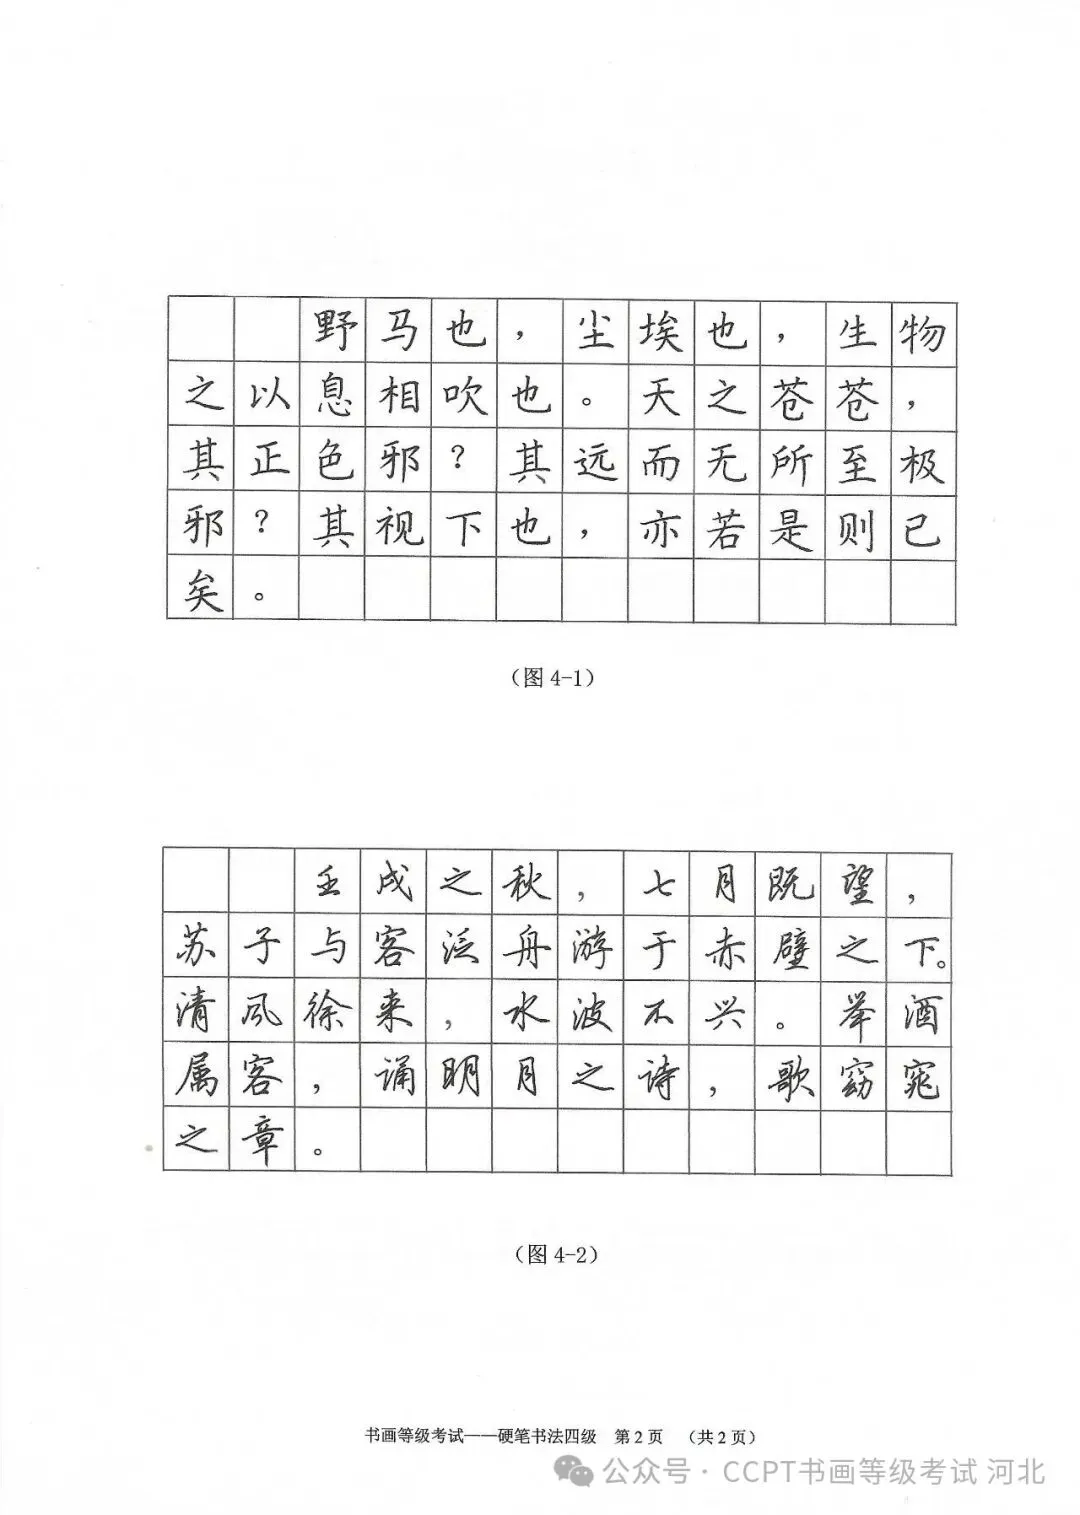 野马也，尘埃也，生物
之以息相吹也。天之苍苍，
其正色邪？其远而无所至极
邪？其视下也，亦若是则已
矣。
（图4-1）
壬戌之秋，七月既望，
苏子与客泛舟游于赤壁之下。
清风徐来，水波不兴。举酒
属客，诵明月之诗，歌窈窕
之章。
（图4-2）
书画等级考试——硬笔书法四级 第2页 （共2页）
公众号·CCPT书画等级考试 河北